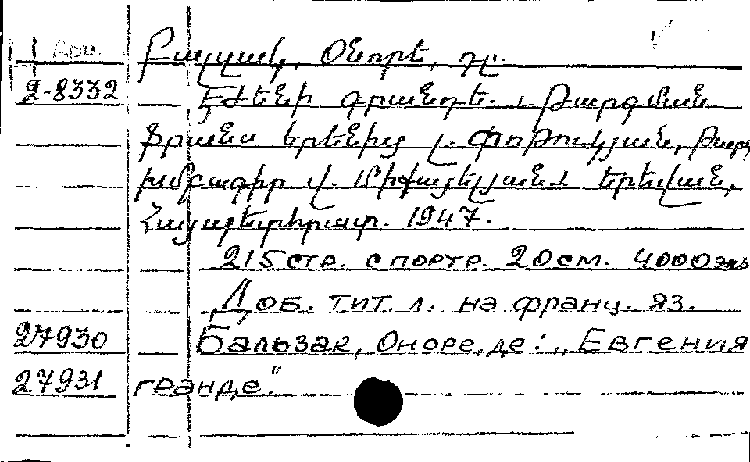 Բալզակ, Օնորե, դը.
2-8332 Էժենի Գրանդե. Թարգման.
ֆրանսերենից Լ. Փոթուկյան, Թարգ
խմբագիր Վ. Միքայելյան: Երևան,
Հայպետհրատ. 1947.
215 стр. с портр. 20 см. 4000 экз
Доб. тит. л. на франц. яз.
27930 Бальзак, Оноре, де: „Евгения
27931 гранде."